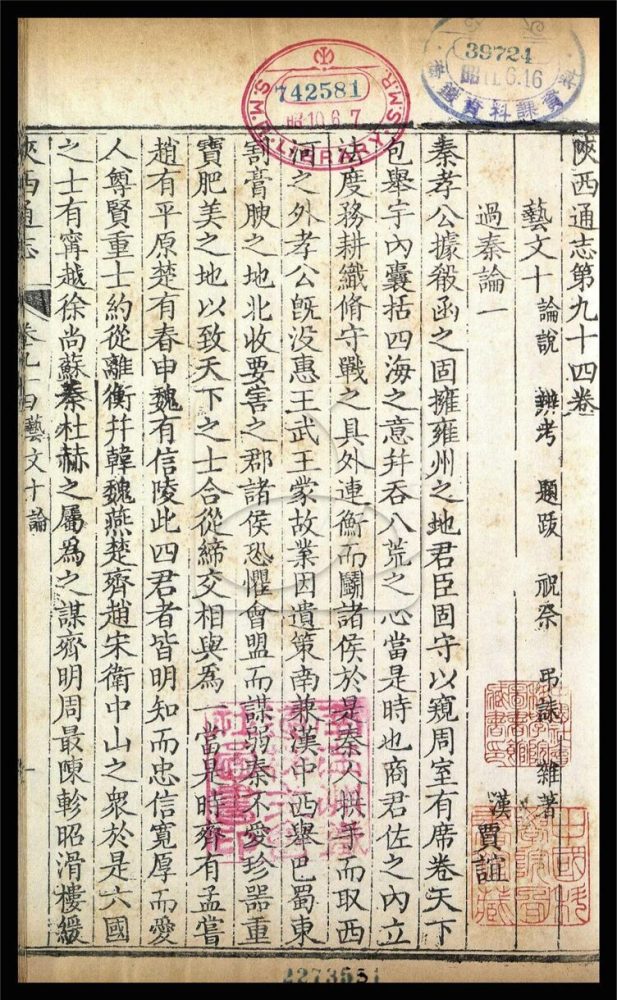 陝西通志第九十四卷
藝文十 論說 辨考 題跋 祝祭 弔誄 雜著
過秦論一 漢 賈誼
秦孝公據殽函之固擁雍州之地君臣固守以窺周室有席卷天下
包舉宇內囊括四海之意幷吞八荒之心當是時也商君佐之內立
法度務耕織脩守戰之具外連衡而鬭諸侯於是秦人拱手而取西
河之外孝公旣没惠王武王蒙故業因遺策南兼漢中西舉巴蜀東
割膏腴之地北收要害之郡諸侯恐懼會盟而謀弱秦不愛珍器重
寶肥美之地以致天下之士合從締交相與為一當是時齊有孟嘗
趙有平原楚有春申魏有信陵此四君者皆明知而忠信寬厚而愛
人尊賢重士約從離衡幷韓魏燕楚齊趙宋衛中山之衆於是六國
之士有甯越徐尚蘇秦杜赫之屬為之謀齊明周最陳軫昭滑樓緩
陝西通志 卷九十四藝文十 論 一
742581
昭10.6.7
S.M.R. LIBRARY
39724
昭11.6.16
資料課
2273651